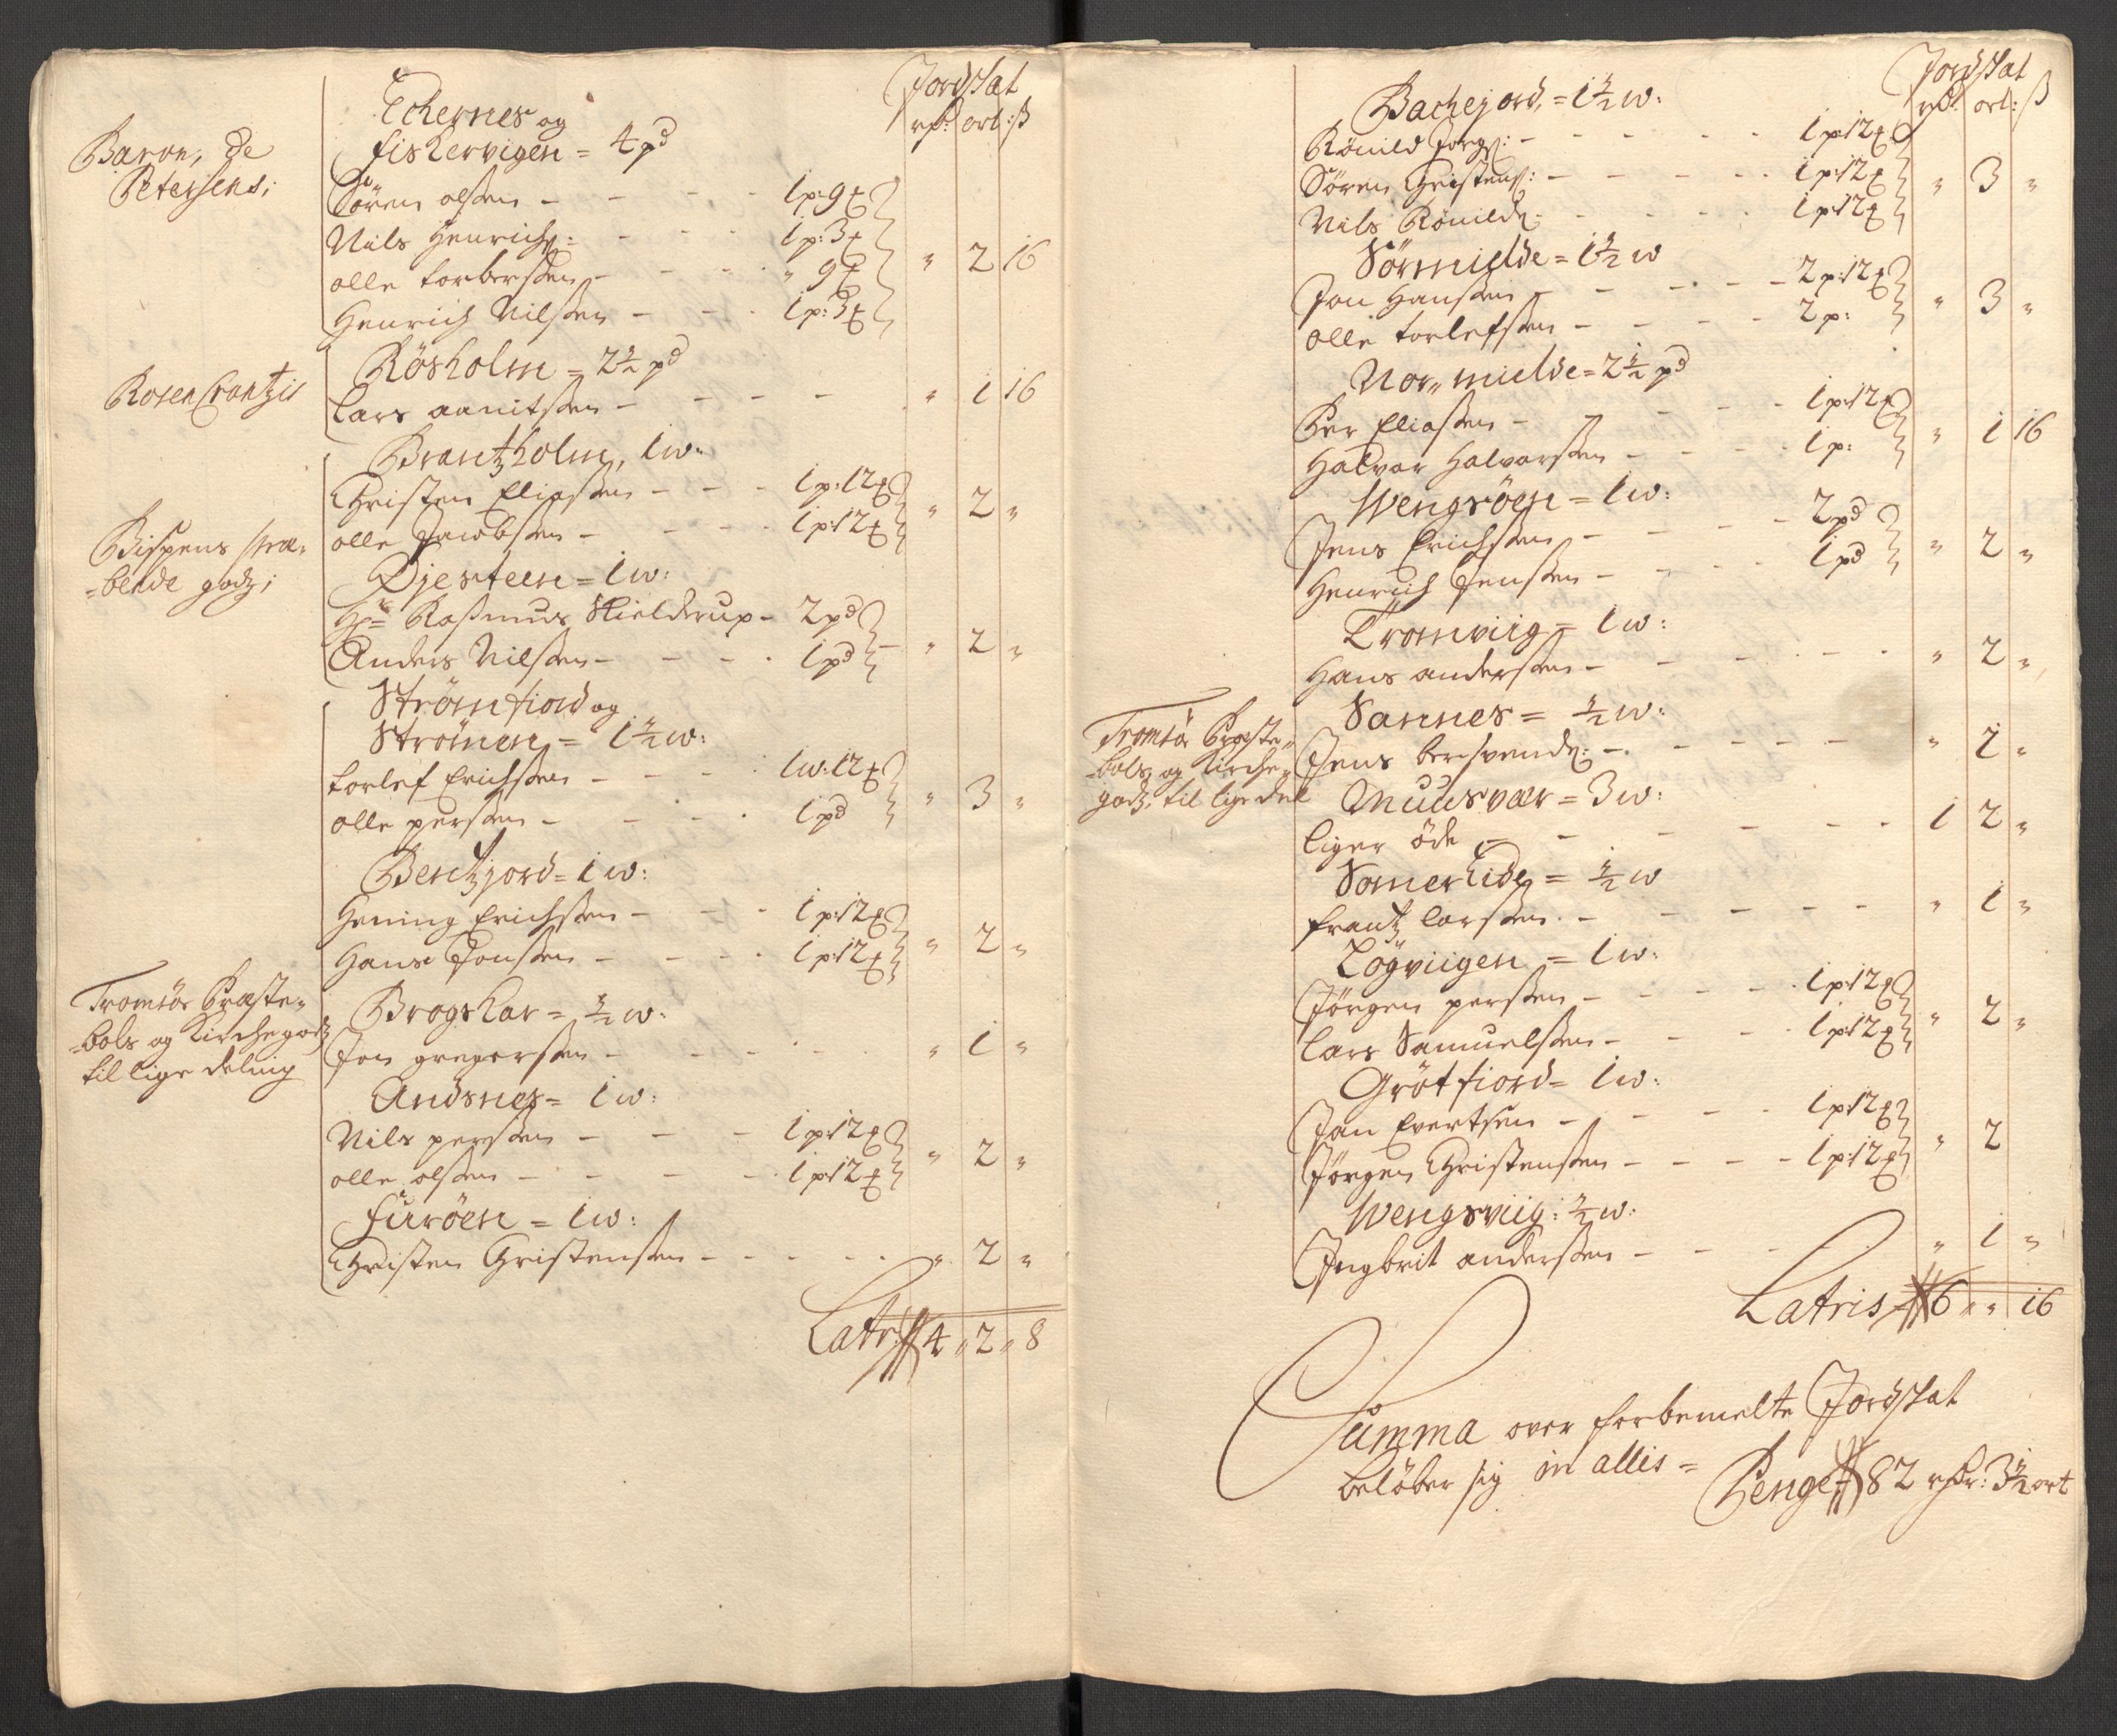 Jordskat
rdr: ort: ß
Baron, de
Petersens;
Echernes og
fiskervigen = 4 pd
Sören olssen - - - 1 p: 9 ℔
Nils Henrichs: - - - 1 p: 3 ℔ " 2 16
olle torberssen - - - " 9 ℔
Henrich Nilssen - - - 1 p: 3 ℔
RosenCrantzis
Rösholm = 2½ pd
Lars aanitssen - - - - " 1 16
Brantzholm, 1 w:
Christen Eliassen - - - 1 p: 12 ℔
olle Jacobssen - - - 1 p: 12 ℔ " 2 "
Bispens præ-
-bende godz;
Djesteen = 1 w:
Hr: Rasmus Skielderup - 2 pd
Anders Nilssen - - - 1 pd " 2 "
Strömfiord og
Strömen = 1½ w:
torlef Erichssen - - - 1 w: 12 ℔
olle perssen - - - 1 pd " 3 "
Bentzjord = 1 w:
Hening Erichssen - - - 1 p: 12 ℔
Hans Jonssen - - - 1 p: 12 ℔ " 2 "
Tromsöe Præste-
-bols og Kirchegodz
til lige deling
Brogskar = ½ w:
Jon gregerssen - - - - " 1 "
Andsnes = 1 w:
Nils perssen - - - 1 p: 12 ℔
olle olssen - - - - 1 p: 12 ℔ " 2 "
Furöen = 1 w:
Christen Christenssen - - - - " 2 "
Latr: 4 " 2 " 8
Jordskat
rdr: ort: ß
Bachejord, = 1½ w:
Rönild Jörgs: - - - - 1 p: 12 ℔
Sören Christens: - - - - 1 p: 12 ℔ " 3 "
Nils Rönilds: - - - - 1 p: 12 ℔
Sörmielde = 1½ w
Jon Hanssen - - - - 2 p: 12 ℔
olle torlefssen - - - - 2 p: " 3 "
Nor, mielde = 2½ pd
Per Eliassen - - - - 1 p: 12 ℔
Halvor Halvorssen - - - - 1 p: " 1 16
Wengsöen = 1 w:
Jens Erichssen - - - - 2 pd
Henrich Jenssen - - - - 1 pd " 2 "
Tromviig = 1 w:
Hans anderssen - - - - " 2 "
Tromsöe Præste-
-bols og Kirche-
godz, til lige deel
Sannes = ½ w:
Jens bersvends: - - - - " 1 "
Muusvær = 3 w:
liger öde - - - - 1 2 "
Somer Eide = ½ w
frantz larssen. - - - - " 1 "
Lögviigen = 1 w:
Jörgen perssen - - - - 1 p: 12 ℔
Lars Samuelssen - - - 1 p: 12 ℔ " 2 "
Grötfiord = 1 w:
Jan Evertsen - - - - 1 p: 12 ℔
Jörgen Christenssen - - - - 1 p: 12 ℔ " 2
Wengsviig: ½ w:
Ingbrit anderssen - - - - " 1 "
Latris 6 " " 16
Summa over forbemelte Jordskat
belöber sig in alles =
Penge 82 rdr: 3½ ort